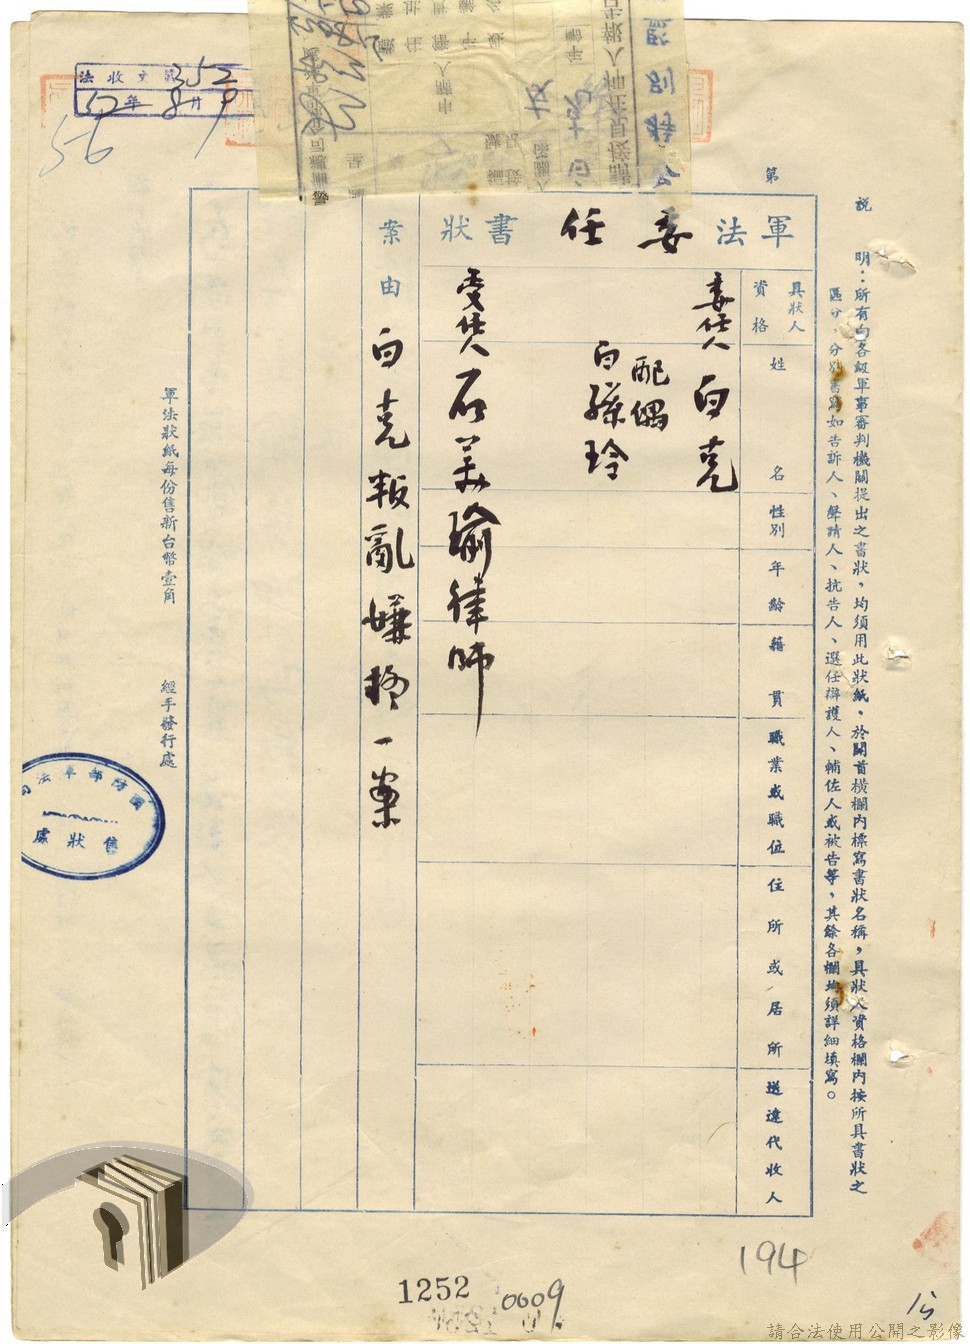 法收文第352
52年8月9
56
第
說明：所有向各級軍事審判機關提出之書狀，均須用此狀紙，於開首橫欄內標寫書狀名稱，具狀人資格欄內按所具書狀之
區分，分別書寫如告訴人、聲請人、抗告人、選任辯護人、輔佐人或被告等，其餘各欄均須詳細填寫。
軍法委任書狀
具狀人
資格
姓名
性別
年齡
籍貫
職業或職位
住所或居所
送達代收人
委任人 白克
配偶
白孫玲
受任人 石美瑜律師
案由 白克叛亂嫌疑一案
軍法狀紙每份售新台幣壹角
經手發行處
國防部軍法局
售狀處
194
1252
0009
15
請合法使用公開之影像